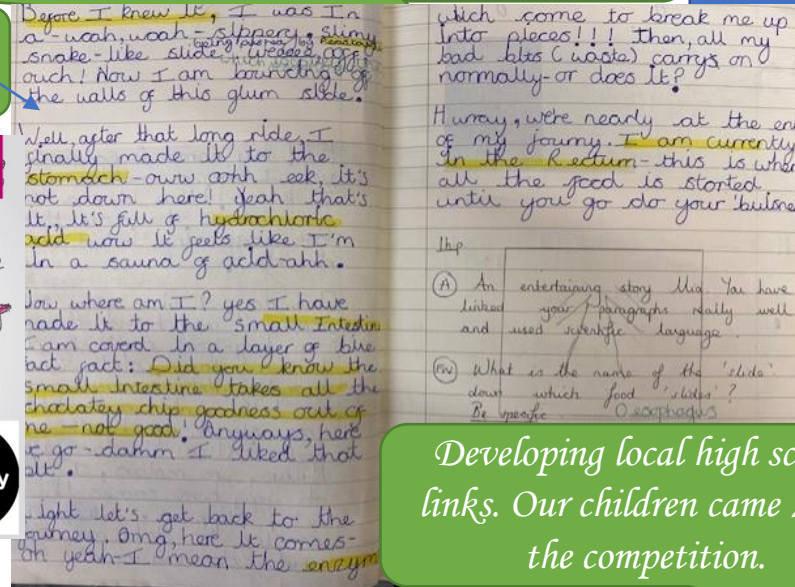 Before I knew it, I was in
a - woah, woah - slippery, slimy
being pushed by
snake-like slide
ouch! Now I am bouncing of
the walls of this glum slide.
Well, after that long ride, I
finally made it to the
stomach - oww oohh eek, it's
not down here! Yeah that's
it, it's full of hydrochloric
acid wow it feels like I'm
in a sauna of acid-ahh.
Now where am I? yes I have
made it to the small Intestin
I am coverd in a layer of bile
fact fact: Did you know the
small intestine takes all the
choclatey chip goodness out of
me - not good! Anyways, here
we go - damm I liked that
bit.
Right let's get back to the
journey. Omg, here it comes-
oh yeah-I mean the enzym
which come to break me up
into pieces!!! Then, all my
bad bits (waste) carrys on
normally-or does it?
Hurray, we're nearly at the en
of my journy. I am currently
in the Rectum - this is wher
all the food is storted
until you go do your 'buisne
1hp
A An entertaining story Mia You have
linked your paragraphs really well
and used scientific language.
What is the name of the 'slide'
down which food 'slides'?
Be specific Oesophagus
Developing local high sc
links. Our children came
the competition.